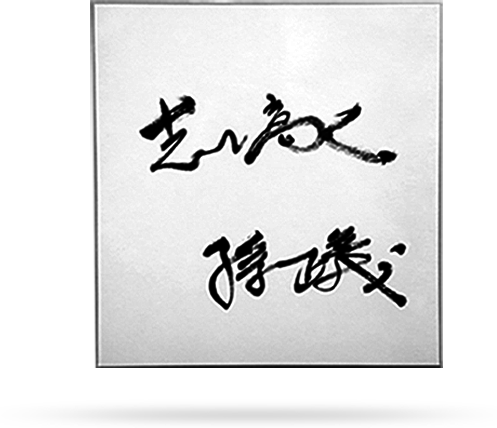 志高く
孫正義